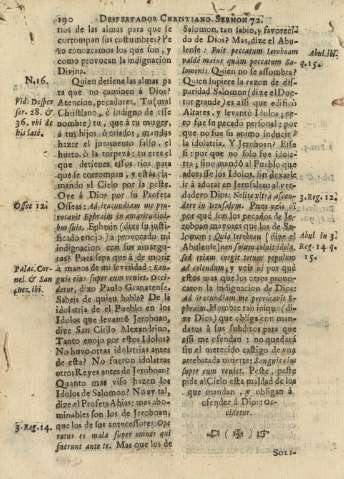 190 DESPERTADOR CHRISTIANO. SERMON 72.
tios de las almas para que se
corrompan sus costumbres? Pe
ro conozcamos los que son, y
como provocan la indignacion
Divina.
N.16.
Quien detiene las almas pa
ra que no caminen à Dios?
Atencion, pecadores. Tu (mal
Christiano, è indigno de esse
nombre) tu, que à tu muger,
à tus hijos, ò criados, mandas
hazer el juramento falso, el
hurto, ò la torpeza: tu eres el
que detienes essos rios para
que se corrompan, y estàs lla-
mando el Cielo por la peste.
Ose à Dios por su Profeta
Osseas:
Ephrain (dize la jus-
tificado enoja) ha provocado mi
indignacion con sus amargu-
ras? Pues sepa que à de morir
à manos de mi severidad:
dize Paulo Granatense.
Sabeis de quien habla? De la
idolatria de el Pueblo en los
Idolos que levantò Jeroboan,
dize San Cirilo Alexandrino.
Tanto enojo por estos Idolos?
No huvo otras idolatrias antes
de esta? No fueron idolatras
otros Reyes antes de Jeroboan?
Quanto mas viso hazen los
Idolos de Salomon? No ay tal,
dize el Profeta Ahias: mas abo-
minables son los de Jeroboan,
que los de sus antecessores: Ope
ratus es mala super omnes qui
fuerunt ante te. Mas que los de
Vid. Desper
ser. 28. &
36. ubi de
his latè.
Osseæ 12.
Palac. Cor-
nel. & San
chez, ibi.
3. Reg. 14.
Salomon, tan sabio, y favoreci-
do de Dios? Mas, dize el Abu-
lense: Fuit peccatum Ieroboam
valdè maius quàm peccatum Sa-
lomonis. Quien no se assombra?
Quien supiere la razon de dis-
paridad. Salomon (dize el Doc-
tor grande) es assi que edificò
Altares, y levantò Idolos; pe-
ro fue su pecado personal: por
que no fue su animo inducir à
la idolatria. Y Jeroboan? Esse
si: por que no solo fue idola-
tra; sino mandò al Pueblo, que
adorasse los Idolos, sin dexarle
ir à adorar en Jerusalem al ver-
dadero Dios.
Pues veis aì
por què son los pecados de Je-
roboan mayores que los de Sa-
lomon: Quia Ieroboan (dize el
Abulense)
y veis aì por què
estos mas que los otros provo-
caron la indignacion de Dios:
Ad iracundiam me provocavit E-
phraim. Hombre tan iniquo (di-
ze Dios) que obliga con man-
datos à sus subditos para que
assi me ofendan: no quedarà
sin el merecido castigo de una
arrebatada muerte: Sanguis eius
super eum veniet. Peste, peste
pide al Cielo esta maldad de los
que mandan, y obligan à
ofender à Dios: Oc-
cidetur.
Abul. ibi.
q. 15.
3. Reg. 12.
Abul. in 3.
Reg. 14. q
15.
SOLI-